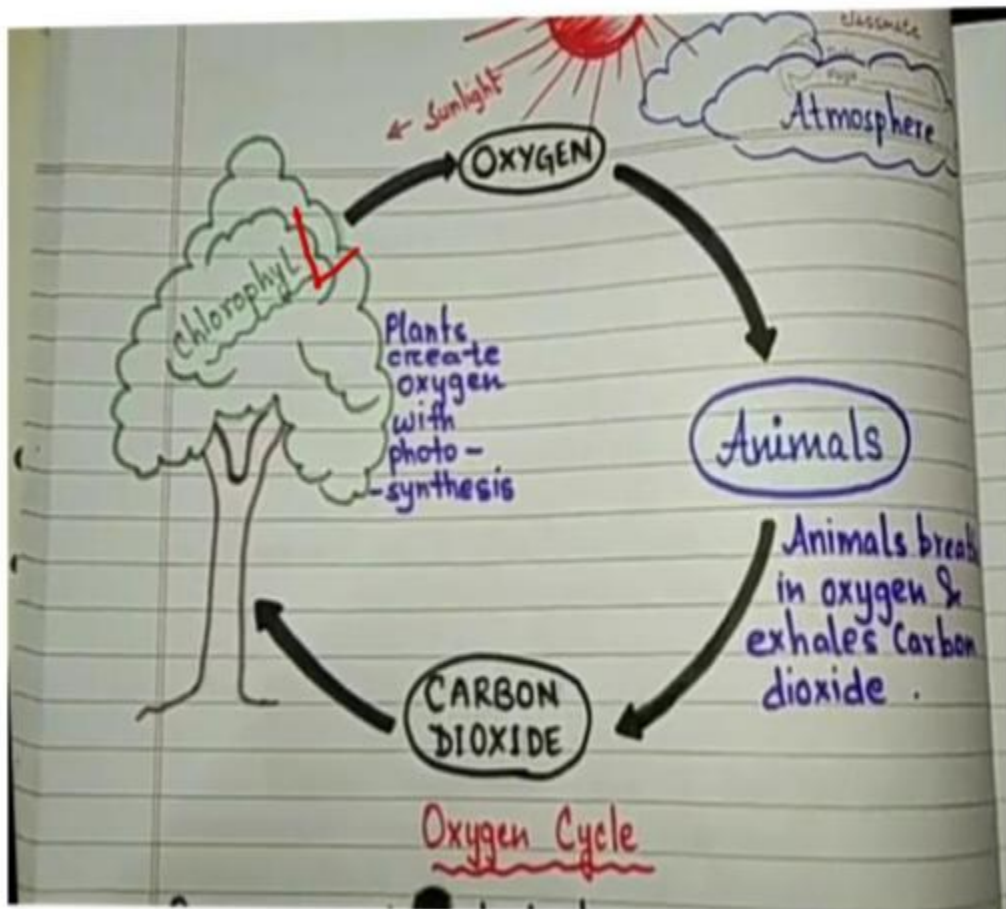 classmate
Page
Atmosphere
← Sunlight
OXYGEN
chlorophyl
Plants
create
oxygen
with
photo-
-synthesis
Animals
Animals
in oxygen &
exhales Carbon
dioxide .
CARBON
DIOXIDE
Oxygen Cycle